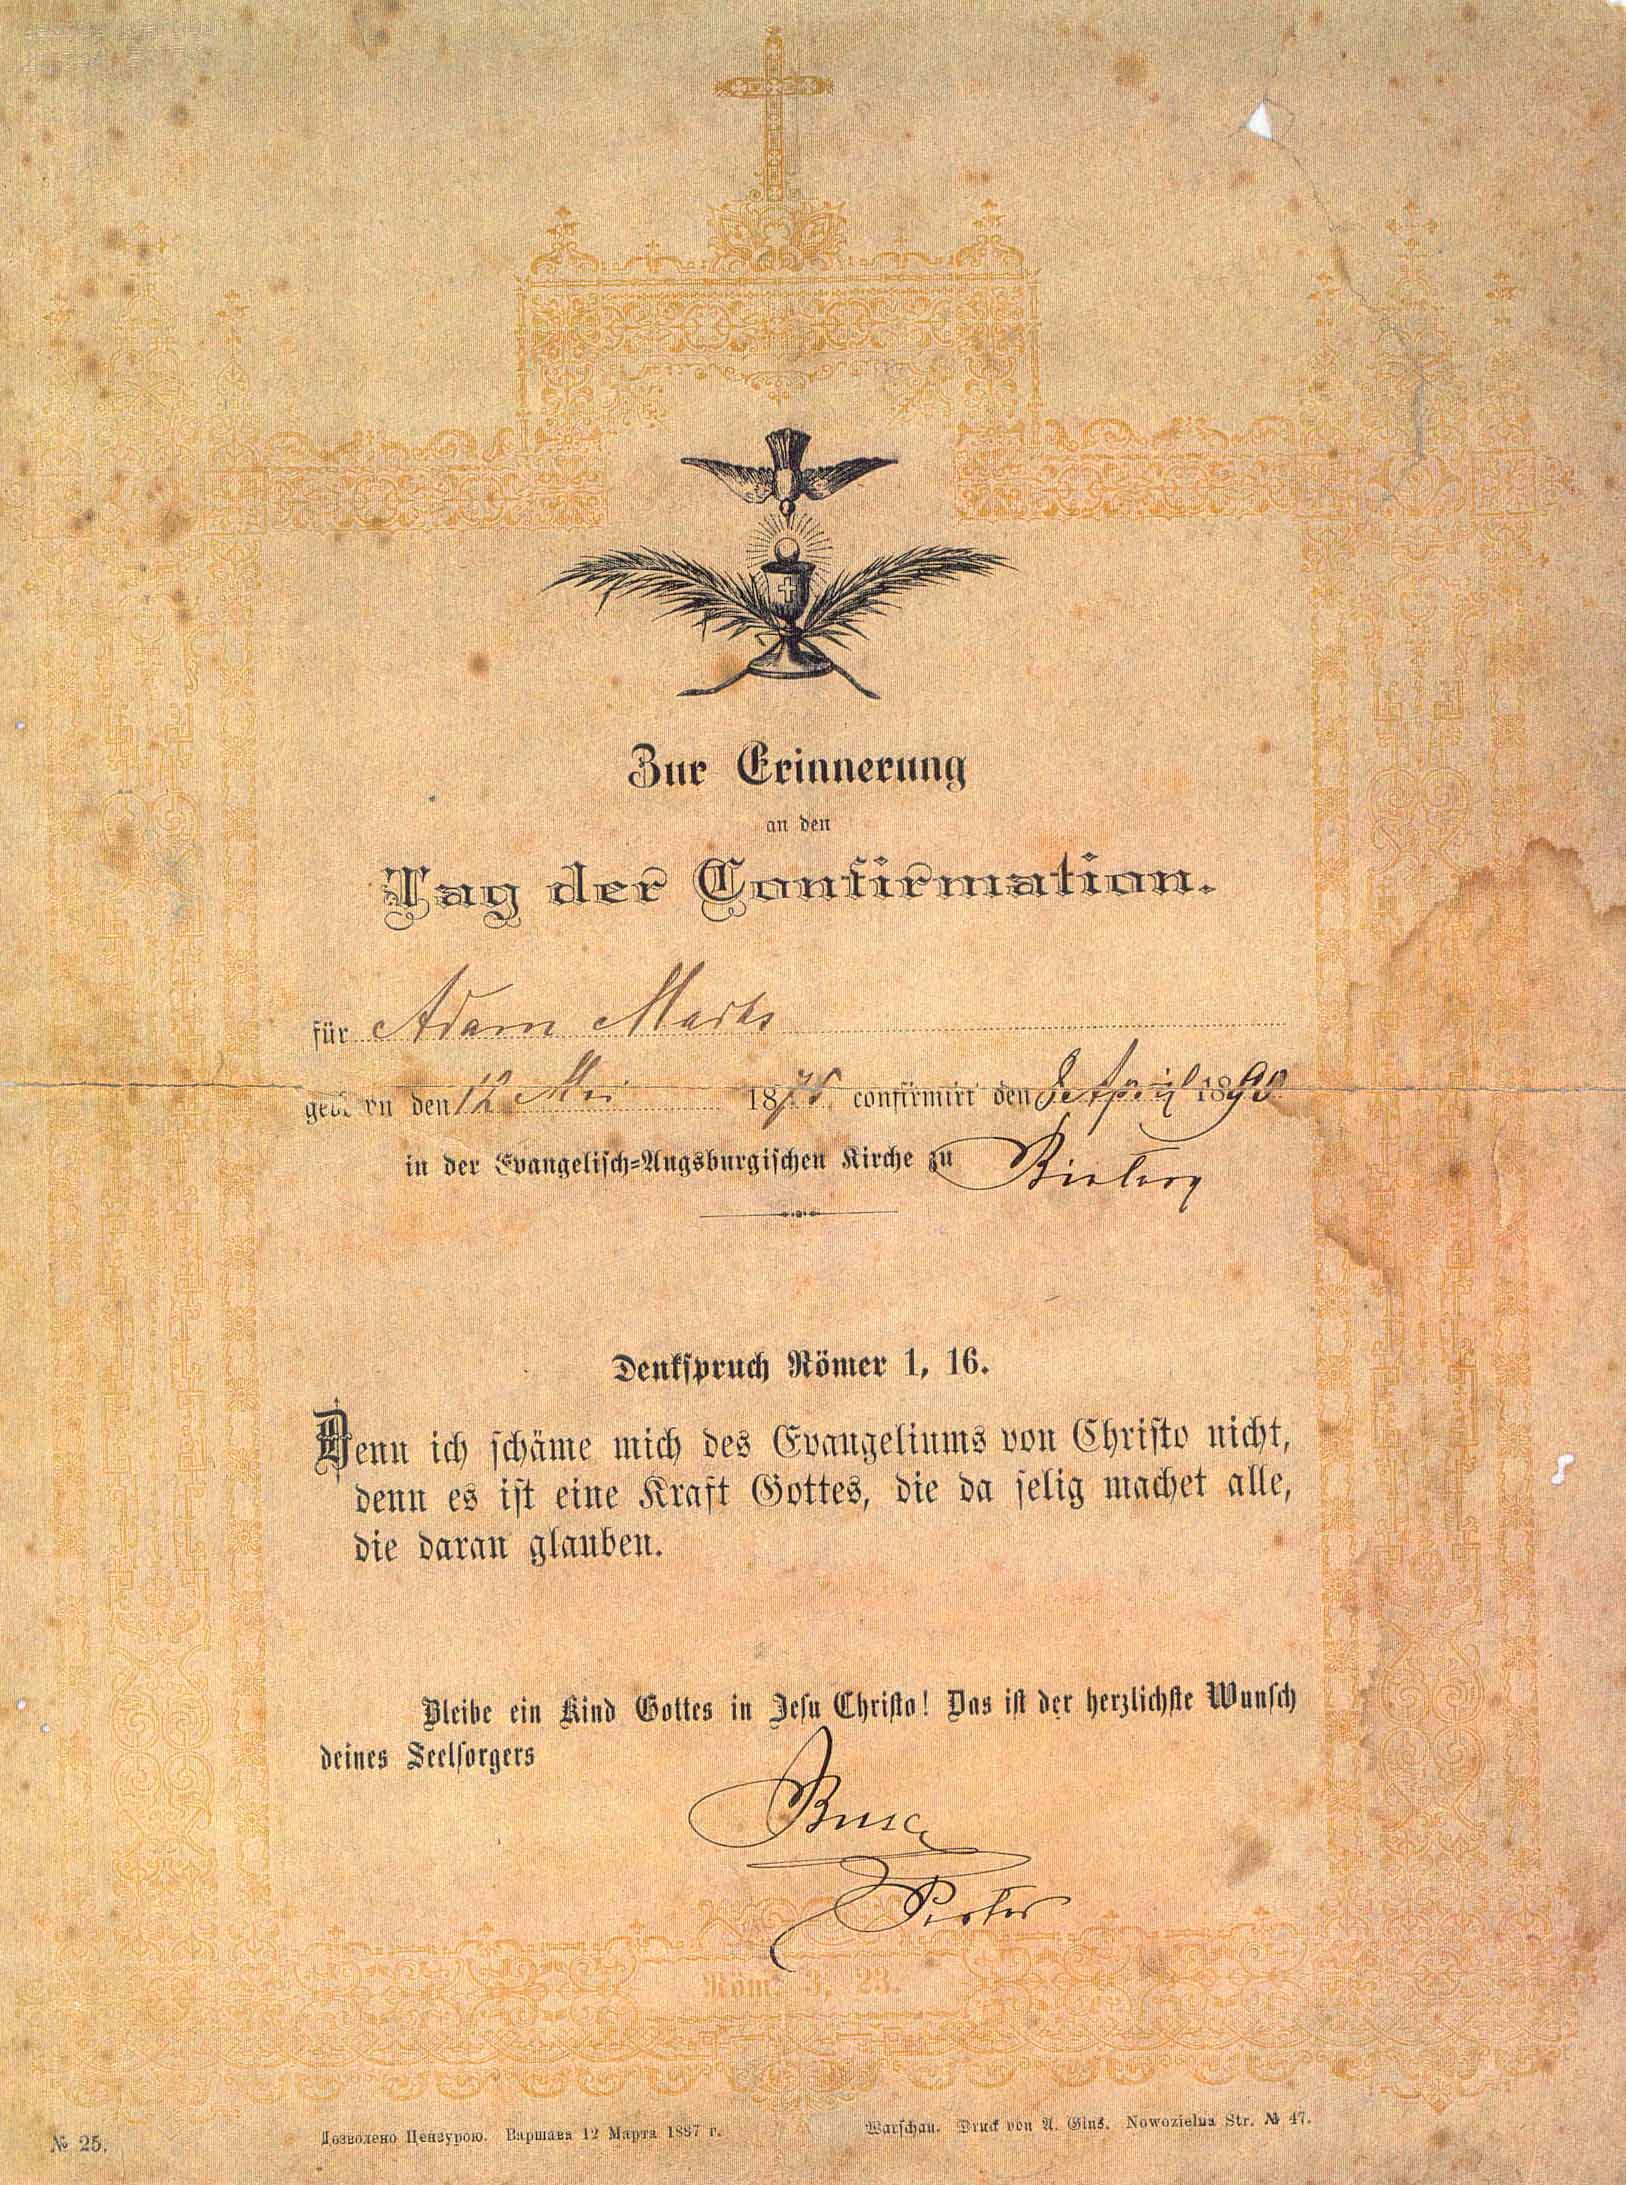 Zur Erinnerung
an den
Tag der Confirmation.
für Adam Marks
geboren den 12 Mai 1875 confirmirt den 8 April 1890
in der Evangelisch=Augsburgischen Kirche zu
Denkspruch Römer 1, 16.
Denn ich schäme mich des Evangeliums von Christo nicht,
denn es ist eine Kraft Gottes, die da selig machet alle,
die daran glauben.
Bleibe ein Kind Gottes in Jesu Christo! Das ist der herzlichste Wunsch
deines Seelsorgers
Pastor
Röm. 3, 23.
№ 25.
Дозволено Цензурою. Варшава 12 Марта 1887 г.
Warschau. Druck von A. Gins. Nowozielna Str. № 47.